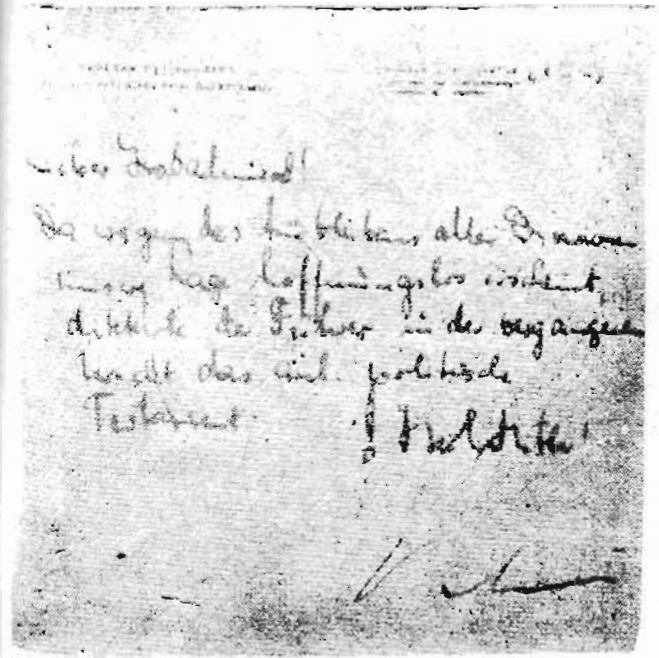 Lieber Großadmiral!
Da wegen des Ausbleibens aller Divisionen
unsere Lage hoffnungslos erscheint,
diktierte der Führer in der vergangenen
Nacht das anl. politische
Testament.
Heil Hitler!